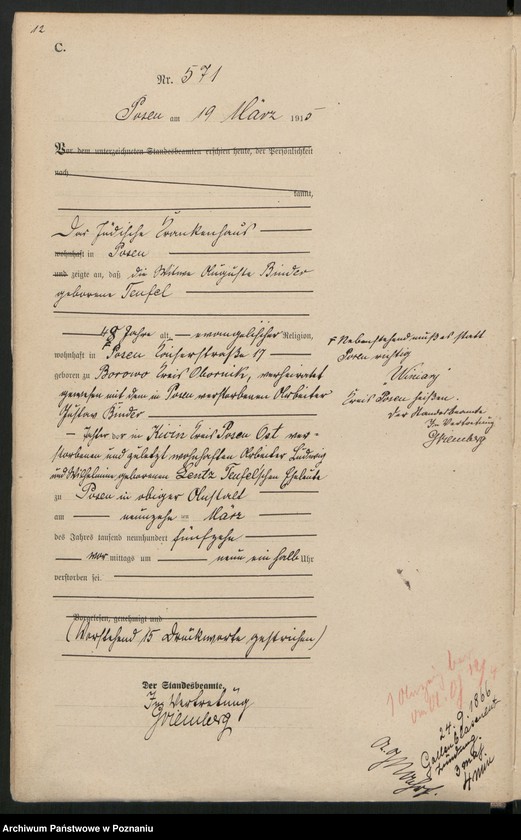 12
C.
Nr. 571
Posen am 19 März 1915
Vor dem unterzeichneten Standesbeamten erschien heute, der Persönlichkeit
nach
kannt,
Das Jüdische Krankenhaus
wohnhaft in Posen
und zeigte an, daß die Witwe Auguste Binder
geborene Teufel
48 Jahre alt, evangelischer Religion,
wohnhaft in Posen Kaiserstraße 17
geboren zu Borowo Kreis Obornik, verheiratet
gewesen mit dem in Posen verstorbenen Arbeiter
Gustav Binder
Tochter der in Kreis Posen Ost ver-
storbenen und zuletzt wohnhaften Arbeiter Ludwig
und Wilhelmine geborenen Lentz Teufelschen Eheleute
zu Posen in obiger Anstalt
am neunzehn ten März
des Jahres tausend neunhundert fünfzehn
vor mittags um neun ein halb Uhr
verstorben sei.
Vorgelesen, genehmigt und
(Vorstehend 15 Druckworte gestrichen)
Der Standesbeamte.
In Vertretung
Nebenstehend muß es statt
Posen richtig
"Winiary"
Kreis Posen heißen.
Der Standesbeamte
In Vertretung
24. 9. 1866
Gallenblasenent
zündung.
Archiwum Państwowe w Poznaniu